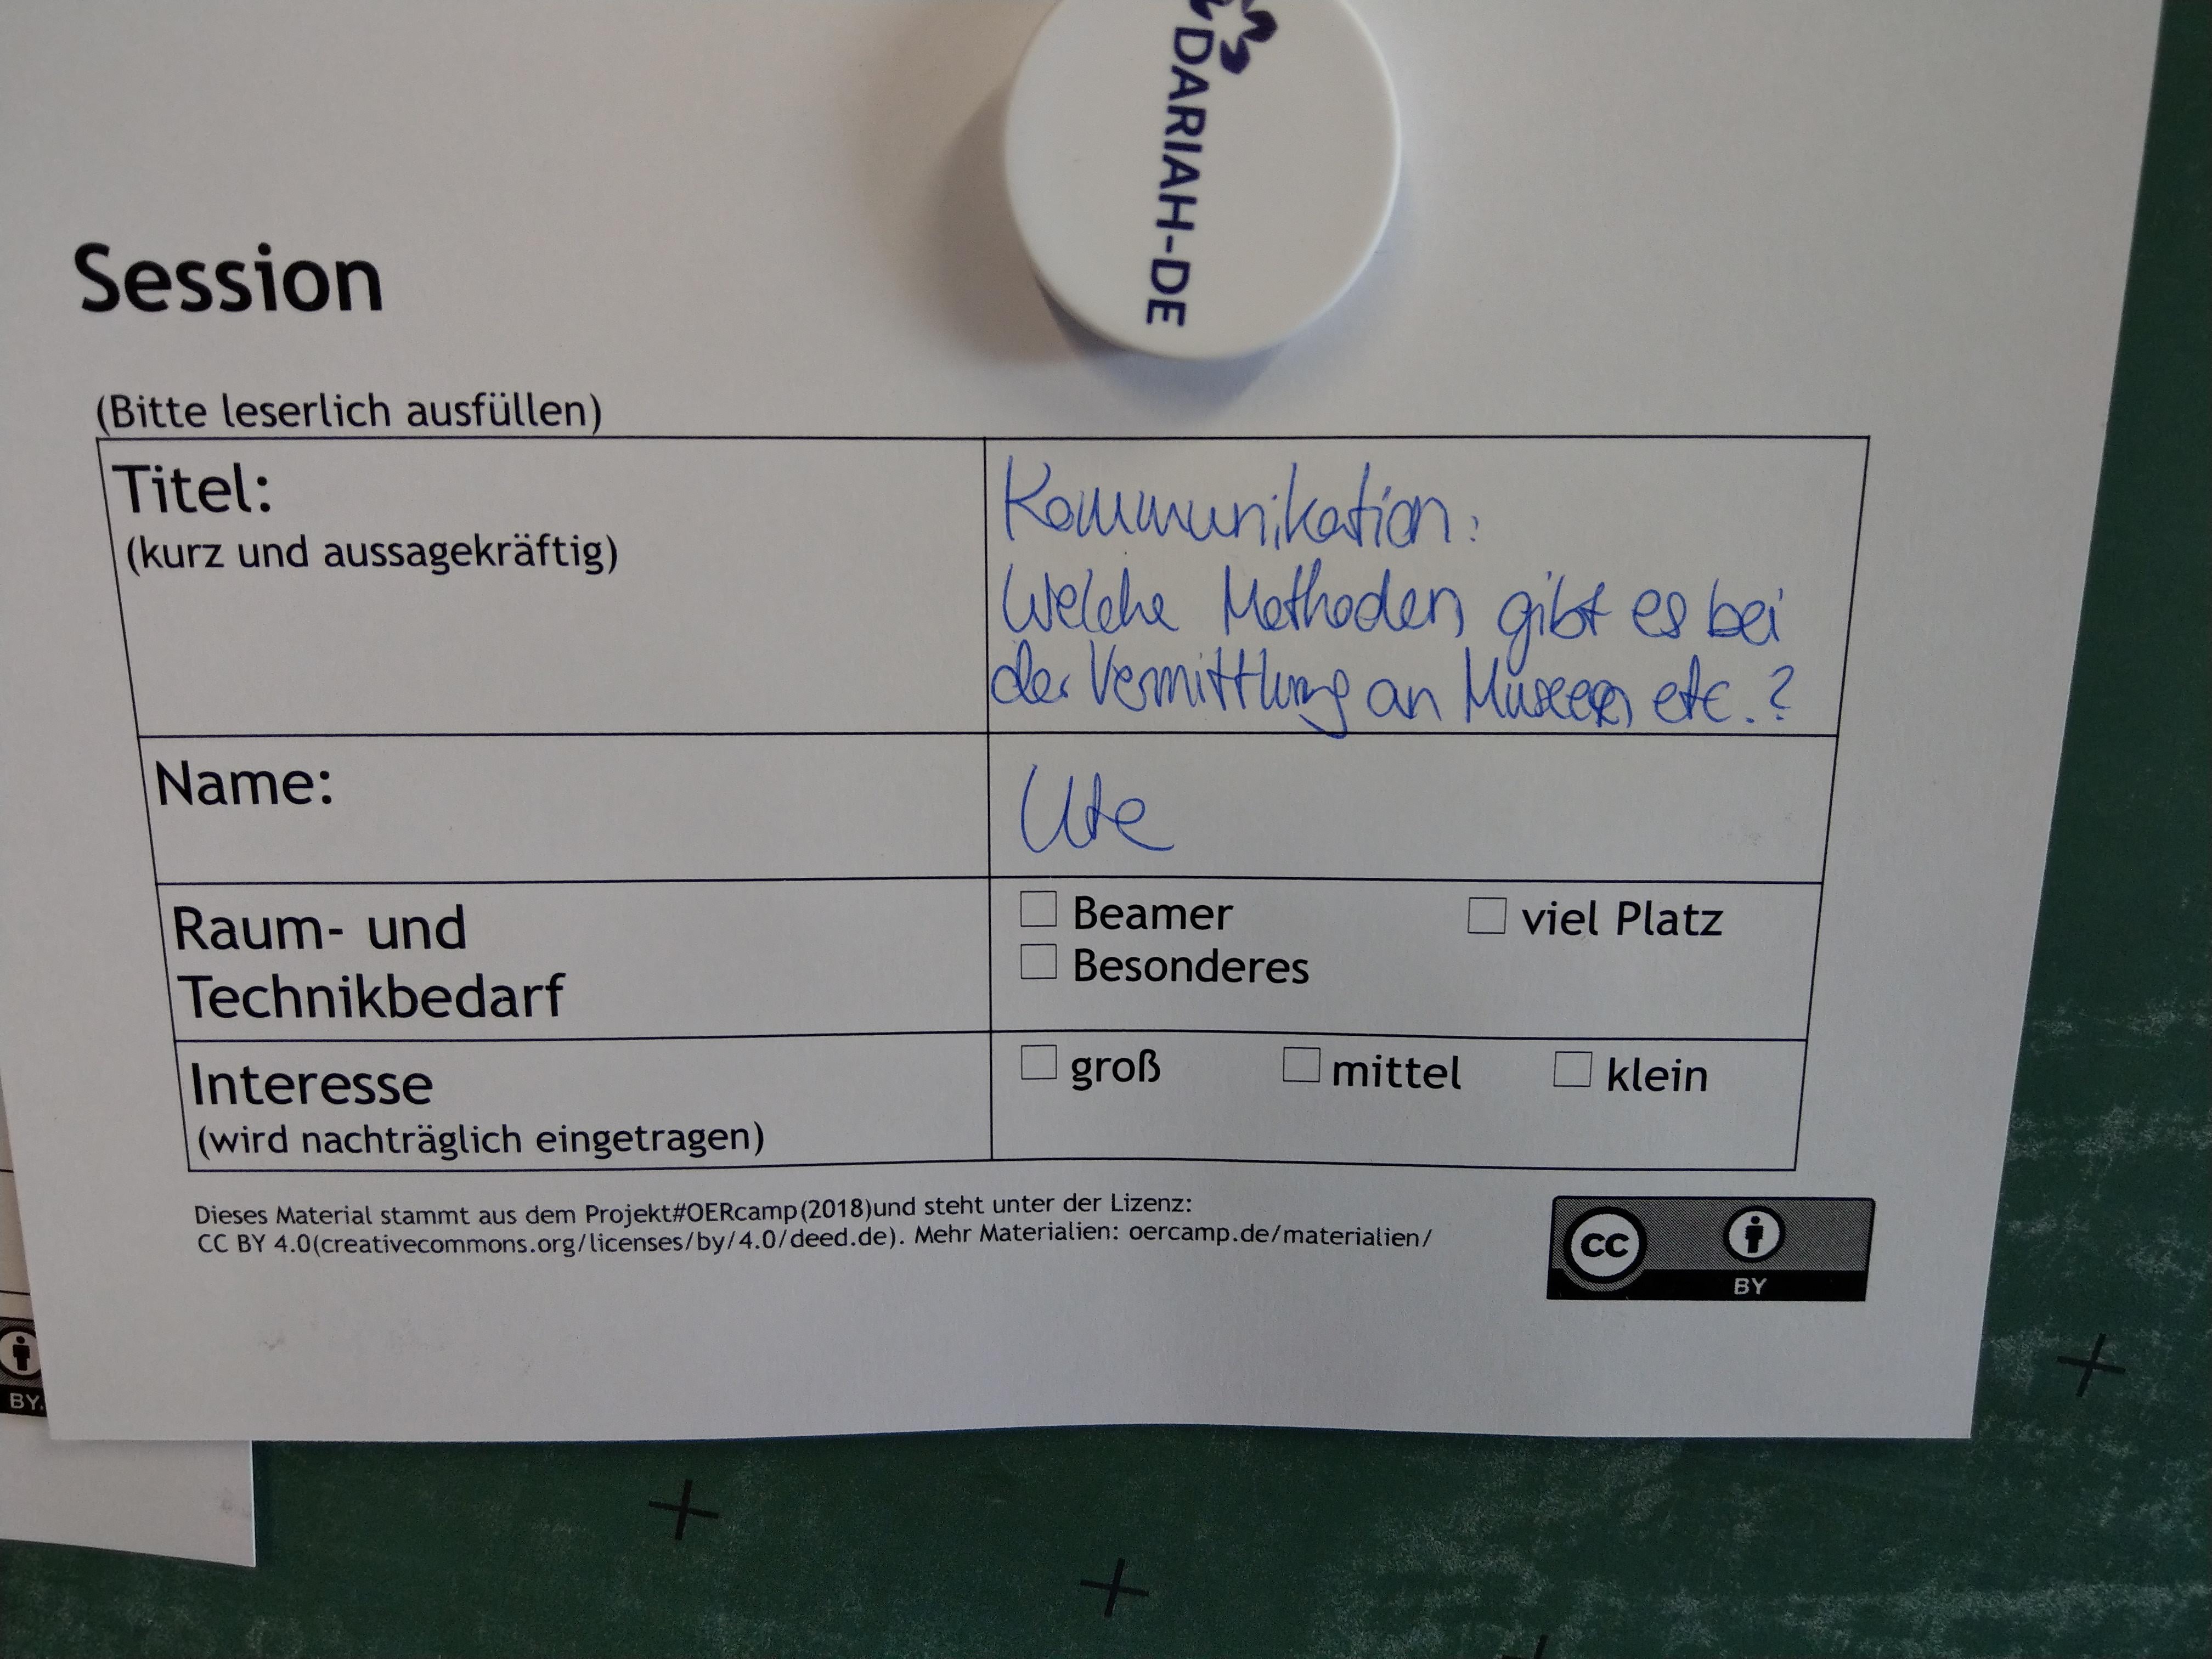 DARIAH-DE
Session
(Bitte leserlich ausfüllen)
Titel:
(kurz und aussagekräftig)
Kommunikation:
Welche Methoden gibt es bei
der Vermittlung an Museen etc.?
Name:
Ute
Raum- und
Technikbedarf
☐ Beamer ☐ viel Platz
☐ Besonderes
Interesse
(wird nachträglich eingetragen)
☐ groß ☐ mittel ☐ klein
Dieses Material stammt aus dem Projekt#OERcamp(2018)und steht unter der Lizenz:
CC BY 4.0(creativecommons.org/licenses/by/4.0/deed.de). Mehr Materialien: oercamp.de/materialien/
cc
BY
BY.